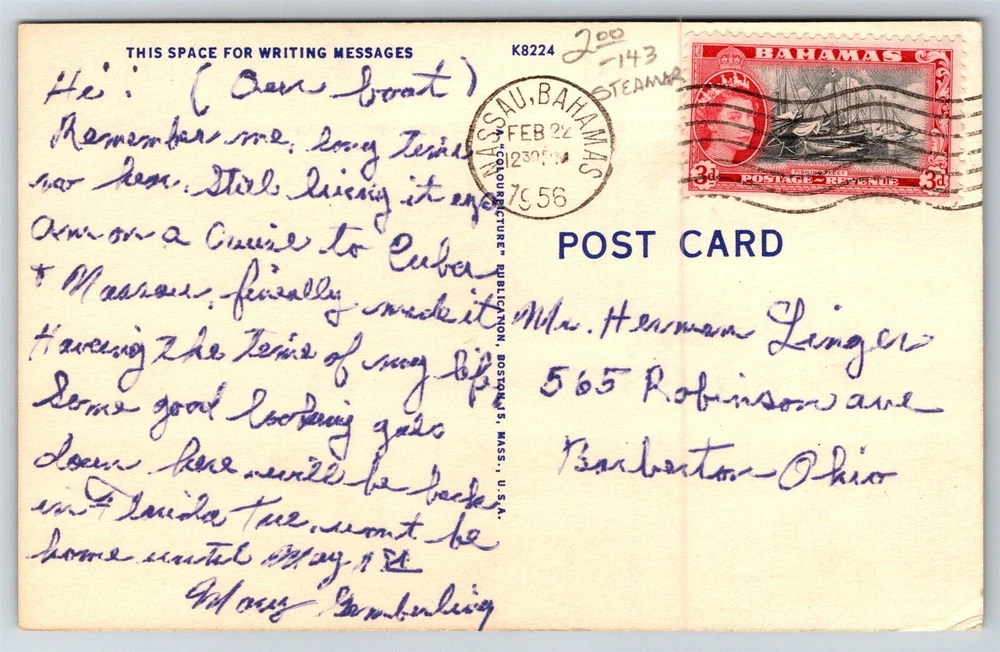 THIS SPACE FOR WRITING MESSAGES
K8224
2.00
-143
STEAMER
Hi! (Our boat)
Remember me, long time
no hear. Still living it up
Am on a Cruise to Cuba
+ Nassau, finally made it
Having the time of my life
Some good looking gals
down here. will be back
in Florida Tue. won't be
home until May 1st
Mary Gemberling
A "COLOURPICTURE" PUBLICATION, BOSTON 15, MASS., U.S.A.
NASSAU, BAHAMAS
FEB 22
12 30 PM
1956
BAHAMAS
3d
POSTAGE REVENUE
3d
POST CARD
Mr. Herman Linger
565 Robinson ave
Barberton Ohio